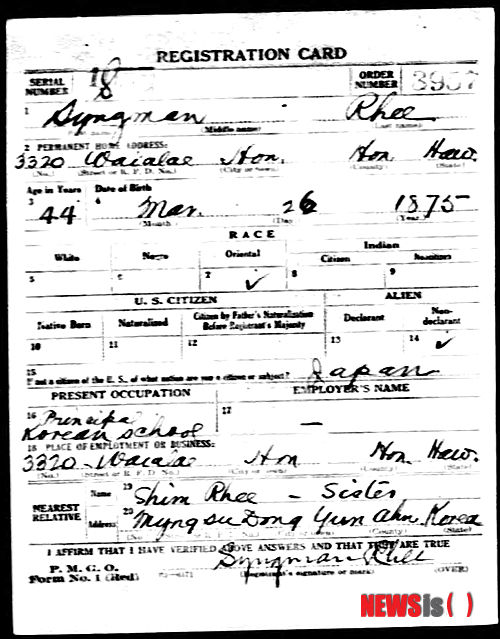 REGISTRATION CARD
SERIAL NUMBER 18 ORDER NUMBER 3907
1 Syngman Rhee
(Middle name) (Last name)
2 PERMANENT HOME ADDRESS:
3320 Waialae Hon. Hon Haw.
(No.) (Street or R. F. D. No.) (City or town) (County) (State)
Age in Years Date of Birth
3 44 4 Mar. 26 1875
(Month) (Day) (Year)
RACE
White Negro Oriental Indian
Citizen Noncitizen
5 6 7 ✓ 8 9
U. S. CITIZEN ALIEN
Native Born Naturalized Citizen by Father's Naturalization Before Registrant's Majority Declarant Non-declarant
10 11 12 13 14 ✓
15 If not a citizen of the U. S., of what nation are you a citizen or subject? Japan
PRESENT OCCUPATION EMPLOYER'S NAME
16 Principal 17 —
Korean School
18 PLACE OF EMPLOYMENT OR BUSINESS:
3320 - Waialae Hon Hon Haw.
(No.) (City or town) (County) (State)
NEAREST RELATIVE Name 19 Shim Rhee - Sister
Address 20 Myng su Dong Yun Ahn, Korea
I AFFIRM THAT I HAVE VERIFIED ABOVE ANSWERS AND THAT THEY ARE TRUE
P. M. G. O. Syngman Rhee
Form No. 1 (Red) (Registrant's signature or mark) (OVER)
NEWSis( )